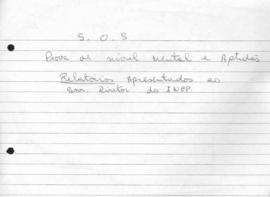 S. O. S
Prova de nível Mental e Aptidões
Relatórios Apresentados ao
Snr. Diretor do INEP.